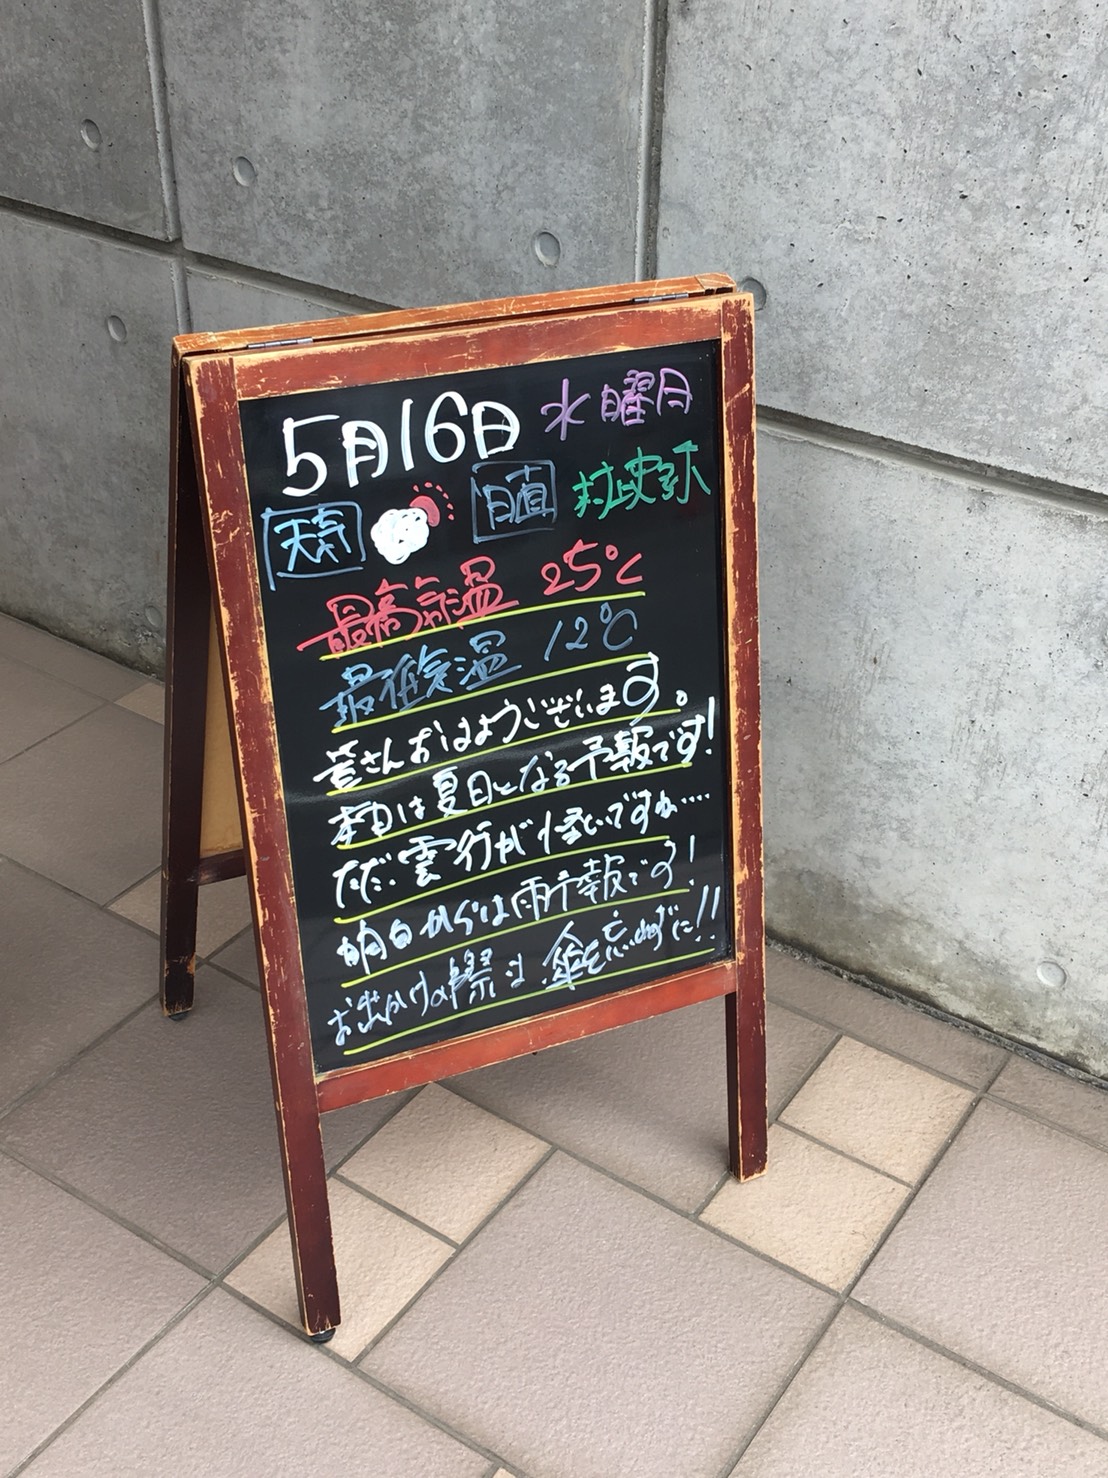 5月16日 水曜日
天気 日直
最高気温 25℃
最低気温 12℃
皆さんおはようございます。
本日は夏日となる予報です!
ただ、雲行が怪しいですが‥‥
明日からは雨予報です!
お出かけの際は傘を忘れずに!!